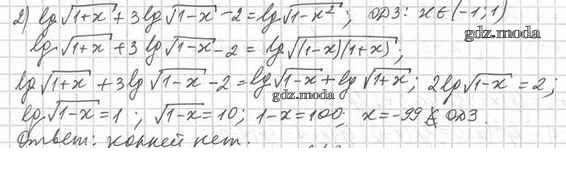 2) lg√(1+x) + 3lg√(1-x) - 2 = lg√(1-x²); ОДЗ: x ∈ (-1; 1)
gdz.moda
lg√(1+x) + 3lg√(1-x) - 2 = lg√((1-x)(1+x));
lg√(1+x) + 3lg√(1-x) - 2 = lg√(1-x) + lg√(1+x); 2lg√(1-x) = 2;
gdz.moda
lg√(1-x) = 1; √(1-x) = 10; 1-x = 100; x = -99 ∉ ОДЗ.
Ответ: корней нет.